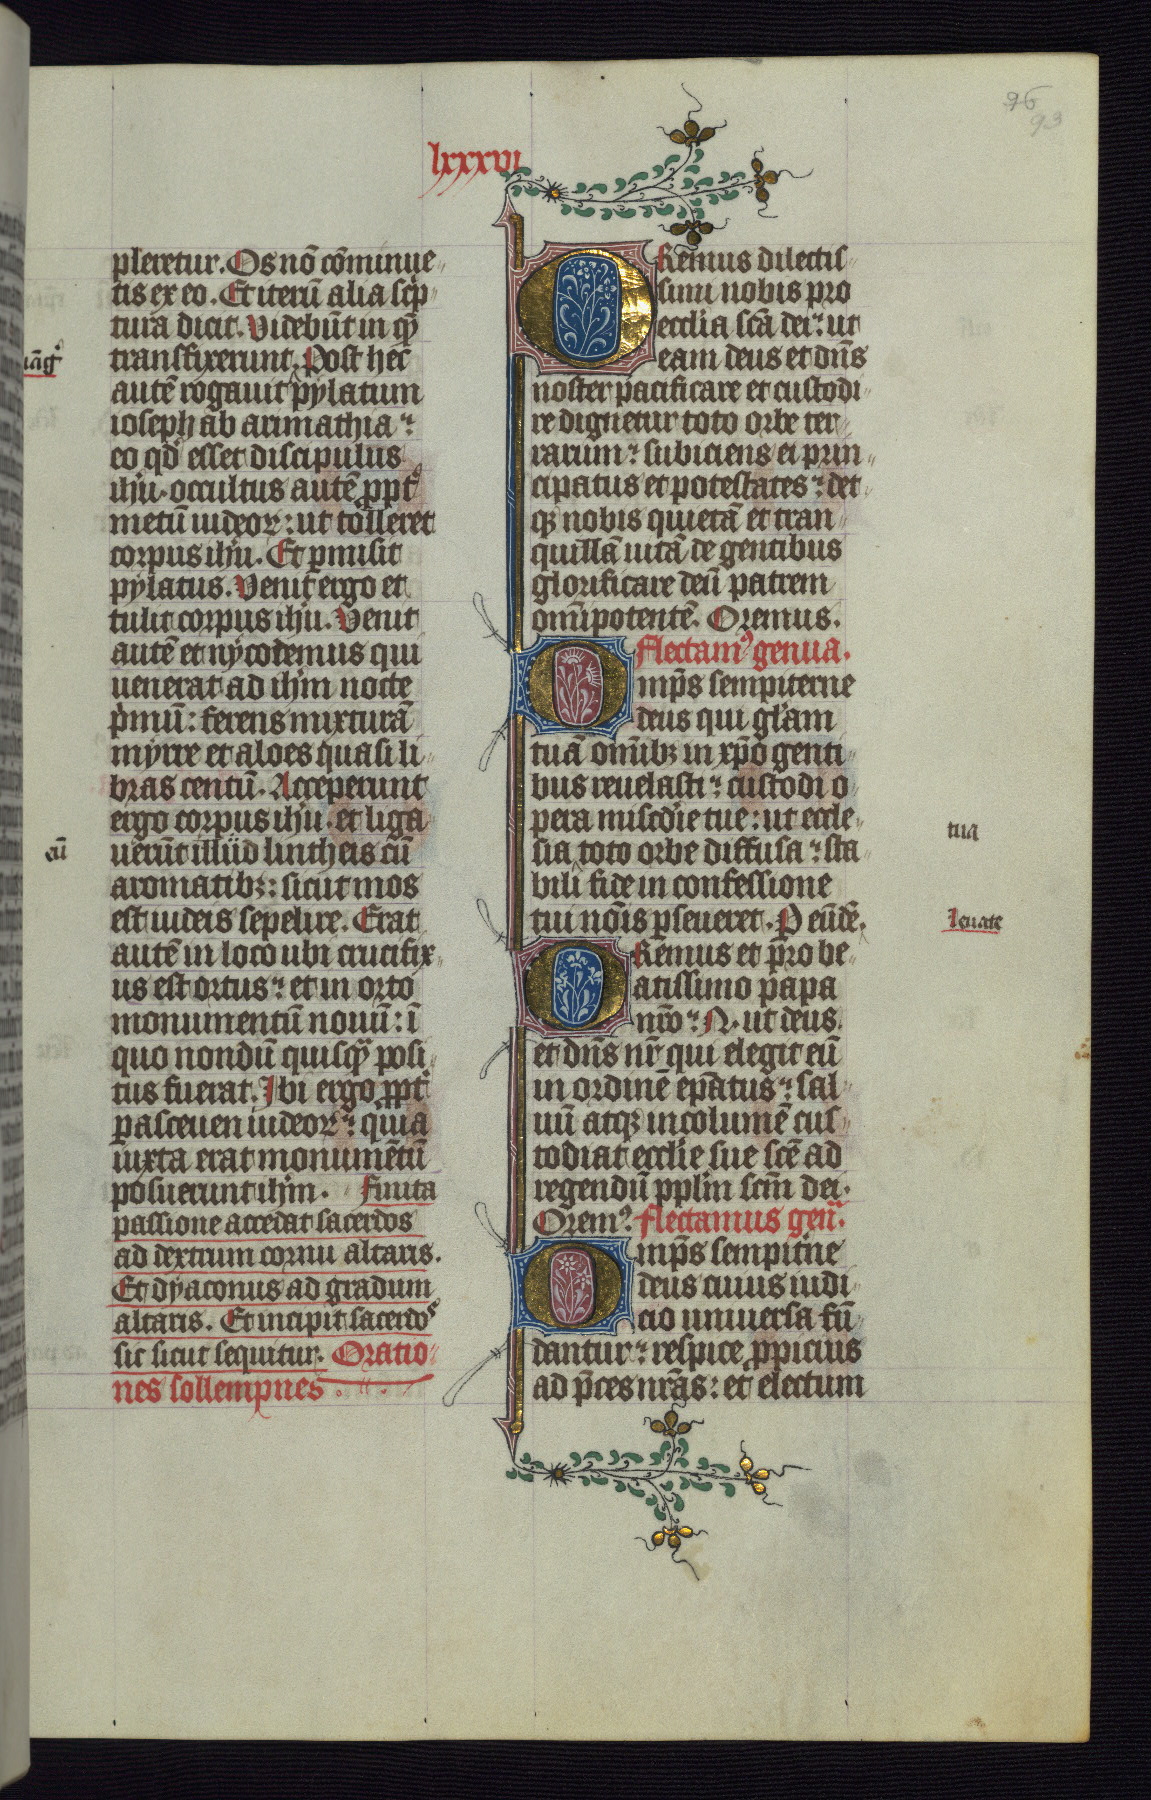 96
93
lxxxvi
pleretur. Os nō cōminue-
tis ex eo. Et iterū alia scͥp-
tura dicit. Videbūt in quē
transfixerunt. Post hec
autē rogauit pylatum
ioseph ab arimathia:
eo qd esset discipulus
ihu. occultus autē ppt
metū iudeoꝝ: ut tolleret
corpus ihu. Et pmisit
pylatus. Venit ergo et
tulit corpus ihu. Venit
autē et nycodemus qui
uenerat ad ihm nocte
pͥmū: ferens mixturā
myrre et aloes quasi li-
bras centū. Acceperunt
ergo corpus ihu. et liga-
uerūt illud lintheis cū
aromatibꝫ: sicut mos
est iudeis sepelire. Erat
autē in loco ubi crucifix-
us est ortus: et in orto
monumentū nouū: ī
quo nondū quisquā posi-
tus fuerat. Ibi ergo ppt
parasceuen iudeoꝝ: quia
iuxta erat monumētū
posuerunt ihm. Finita
passione accedat sacerdos
ad dextrum cornu altaris.
Et dyaconus ad gradum
altaris. Et incipit sacerdos
sic sicut sequitur. Oratio-
nes sollempnes
cū
Oremus dilectis-
simi nobis pro
ecclia scā dei: ut
eam deus et dns
noster pacificare et custodi-
re dignetur toto orbe ter-
rarum: subiciens ei prin-
cipatus et potestates: det-
qꝫ nobis quietā et tran-
quillā uitā de gentibus
glorificare deū patrem
omīpotentē. Oremus.
Flectamꝰ genua.
Omps sempiterne
deus qui gl'am
tuā omībꝫ in xpo genti-
bus reuelasti: custodi o-
pera miscdie tue: ut eccle-
sia toto orbe diffusa: sta-
bili fide in confessione
tui nois pseueret. P eūdē.
Oremus et pro be-
atissimo papa
nro: N. ut deus
et dns nr qui elegit eū
in ordinē epatus: sal-
uū atqꝫ incolumē cus-
todiat ecclie sue scē ad
regendū pplm scm dei.
Oremꝰ. Flectamus genu.
Omps sempitne
deus cuius iudi-
cio uniuersa fū-
dantur: respice ppicius
ad pces nras: et electum
tua
Leuate